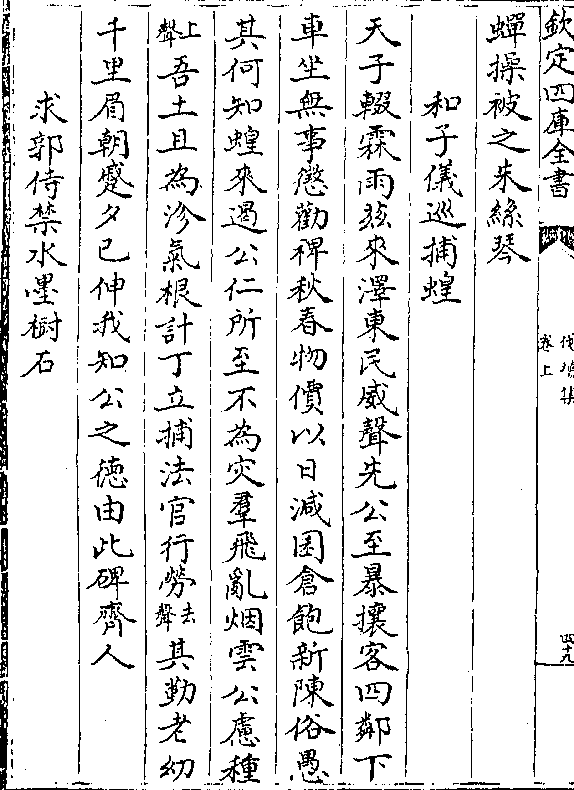 欽定四庫全書
伐檀集
卷上
四十九
蟬操被之朱絲琴
和子儀巡捕蝗
天子輟霖雨玆來澤東民威聲先公至暴攘客四鄰下
車坐無事懲勸裨秋春物價以日減囷倉飽新陳俗愚
其何知蝗來遏公仁所至不為灾羣飛亂烟雲公慮種
上聲吾土且為沴氣根計丁立捕法官行勞去聲其勤老幼
千里眉朝蹙夕已伸我知公之德由此碑齊人
求郭侍禁水墨樹石